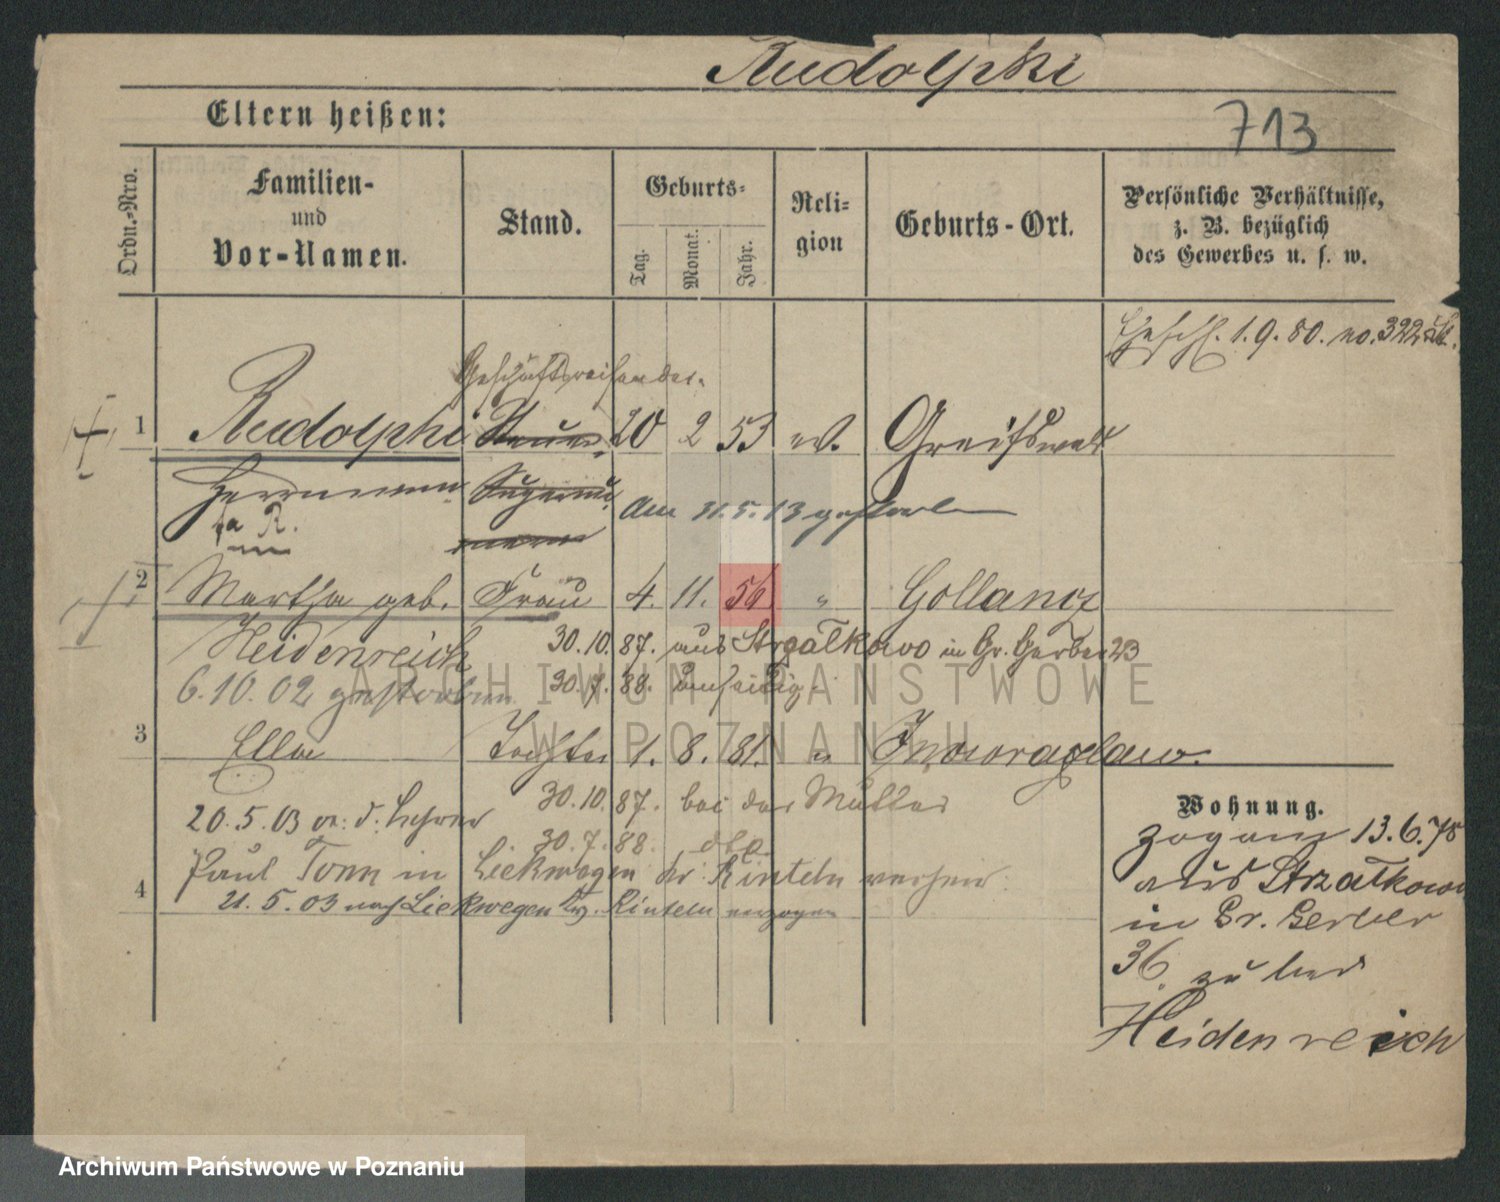 Rudolphi
713
Eltern heißen:
Ordn.-Nro.
Familien-
und
Vor-Namen.
Stand.
Geburts-
Tag.
Monat.
Jahr.
Reli-
gion
Geburts-Ort.
Persönliche Verhältnisse,
z. B. bezüglich
des Gewerbes u. s. w.
1. 9. 80. no. 322
Geschäftsreisender.
1 Rudolphi 20 2 53 ev. Greifswald
Herrmann
Am 31. 5. 13 gestorben
2 Martha geb. Frau 4. 11. 56 " Gollancz
Heidenreich 30. 10. 87. aus Strzalkowo in Gr. Gerber 23
6. 10. 02 gestorben 30. 7. 88.
3 Ella Tochter 1. 8. 81. " Inowrazlaw.
30. 10. 87. bei der Mutter
20. 5. 03 d. Lehrer
30. 7. 88. dto
Paul Tonn in Liekwegen Kr. Rinteln
4
21. 5. 03 nach Liekwegen Rinteln
Wohnung.
zog am 13. 6. 78
aus Strzalkowo
in Gr. Gerber
36. zu
Heidenreich
ARCHIWUM PAŃSTWOWE
W POZNANIU
Archiwum Państwowe w Poznaniu